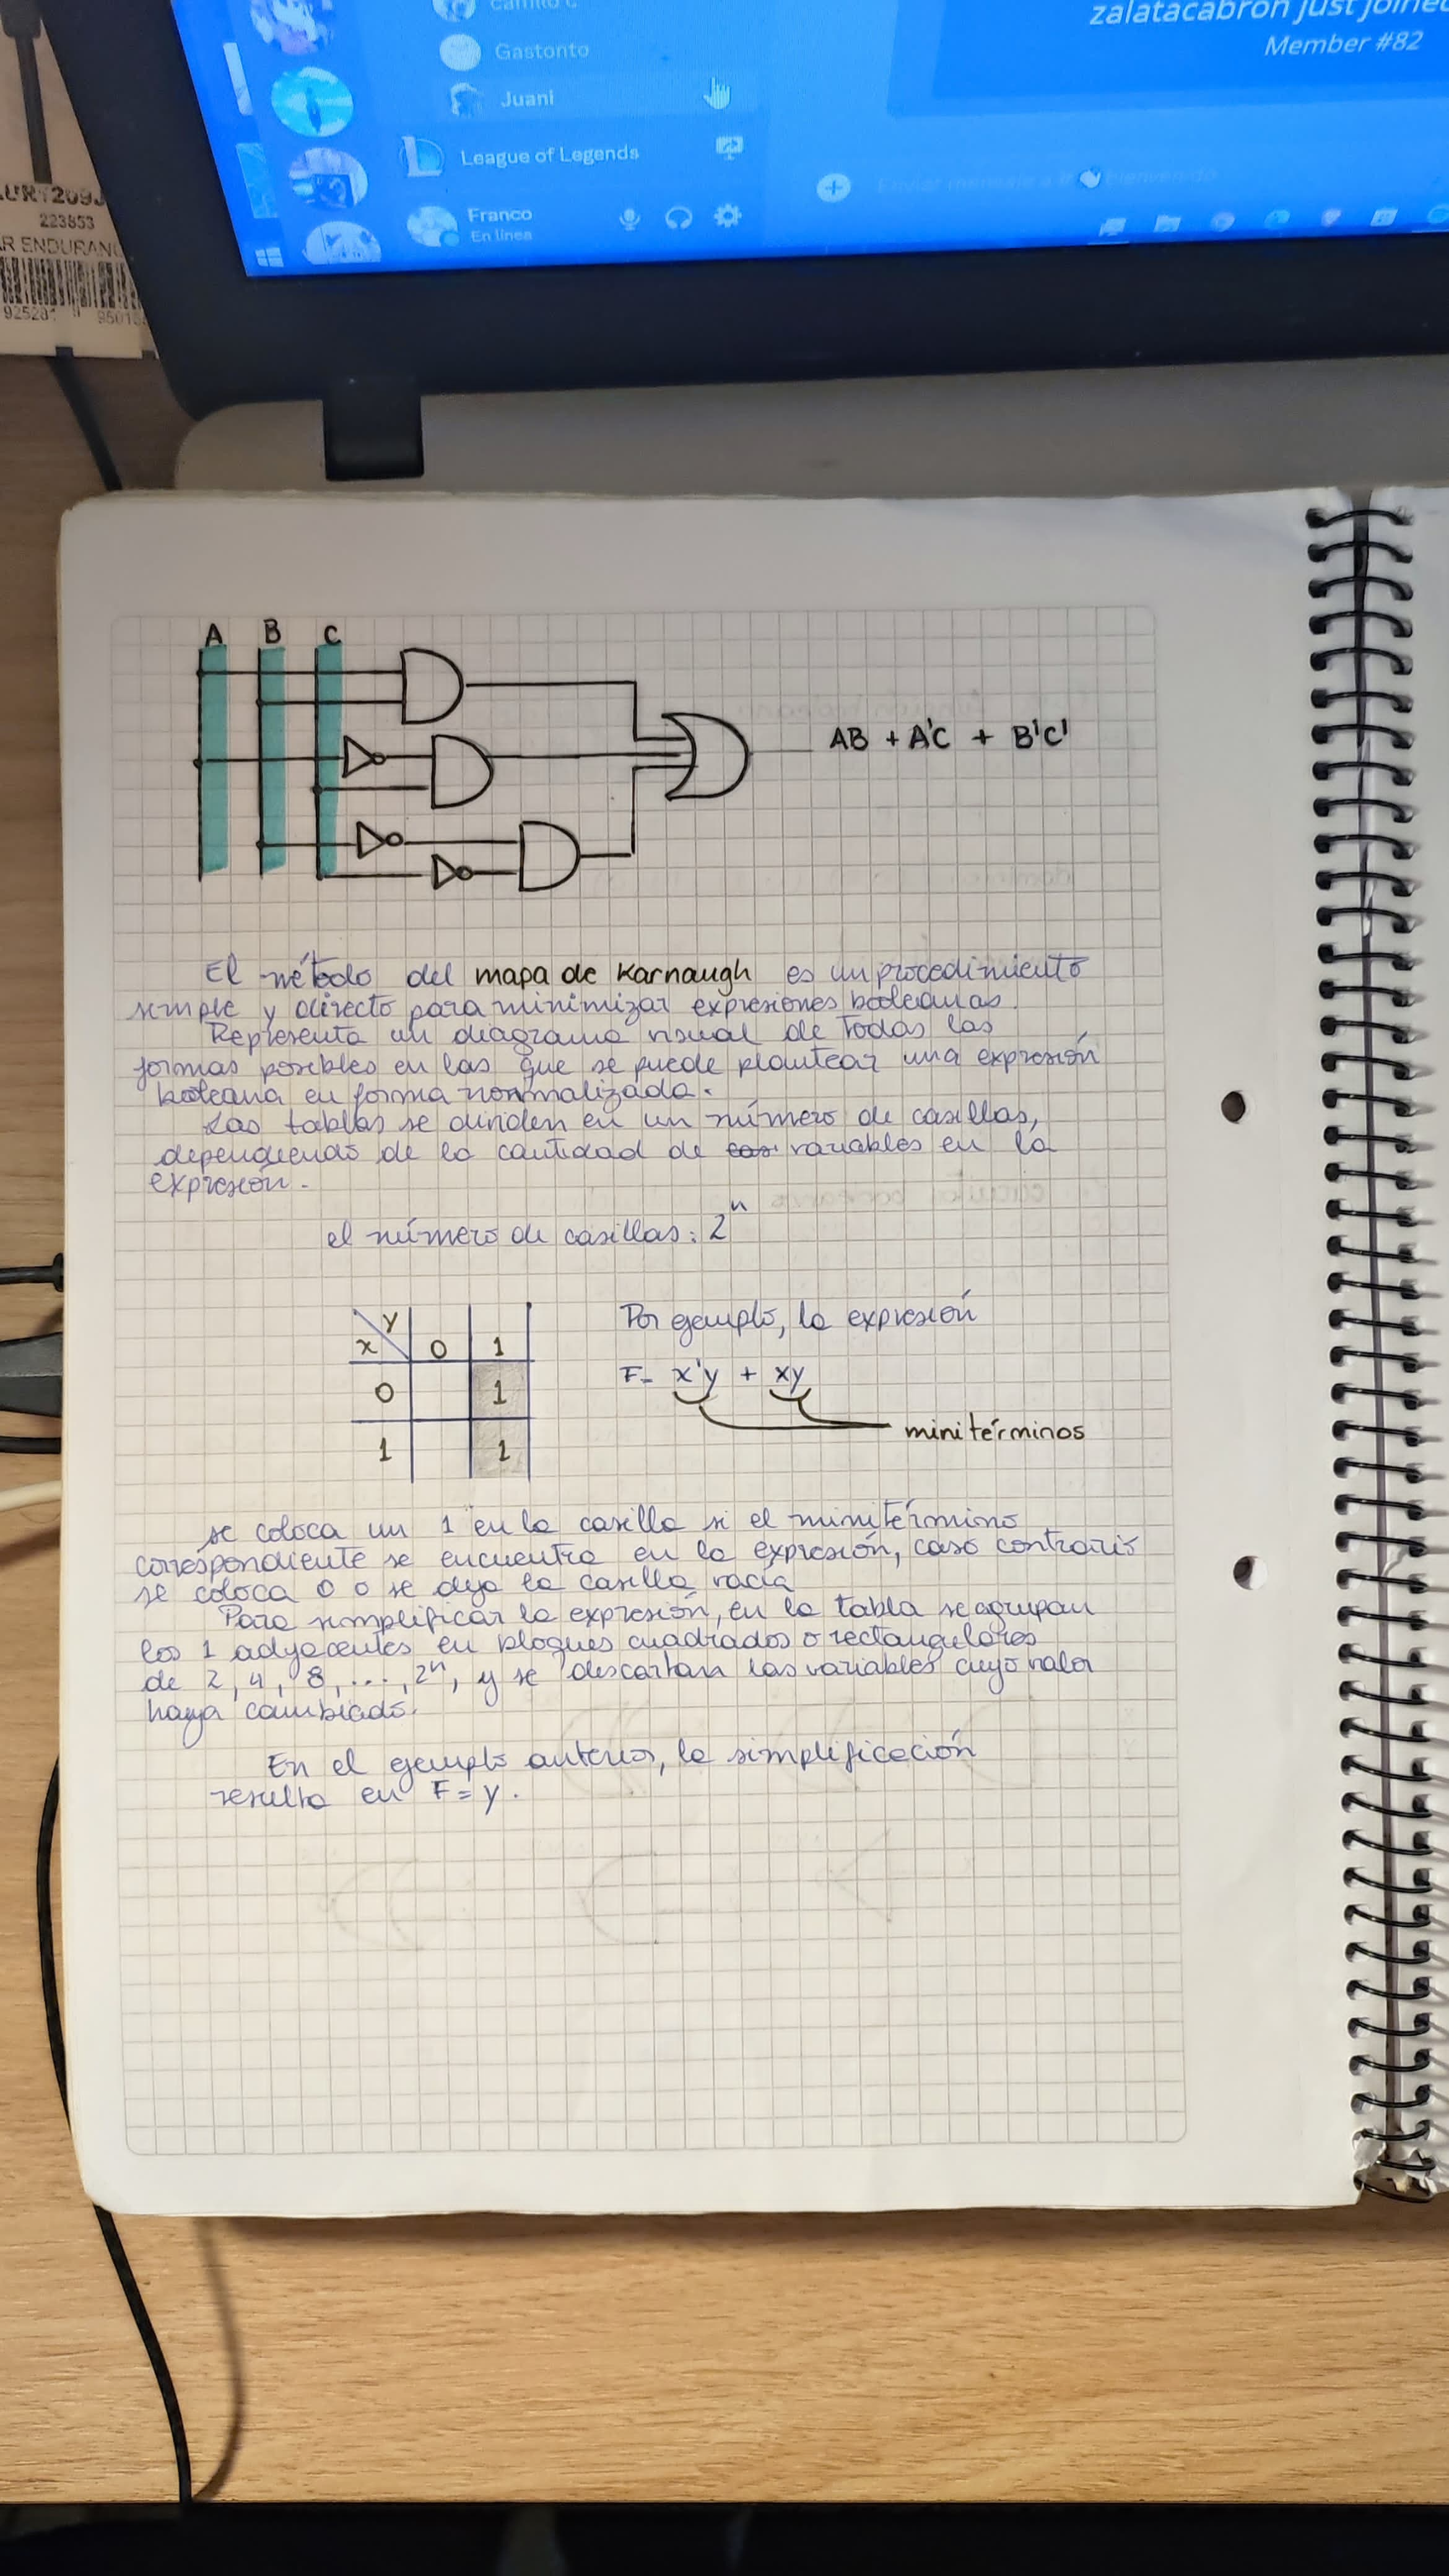 Gastonto
Juani
League of Legends
Franco
En línea
zalatacabron just joined
Member #82
223853
R ENDURANC
A B C
AB + A'C + B'C'
El método del mapa de Karnaugh es un procedimiento
simple y directo para minimizar expresiones booleanas.
Representa un diagrama visual de todas las
formas posibles en las que se puede plantear una expresión
booleana en forma normalizada.
Las tablas se dividen en un número de casillas,
dependiendo de la cantidad de variables en la
expresión.
el número de casillas: 2ⁿ
y
x 0 1
0 1
1 1
Por ejemplo, la expresión
F= x'y + xy
minitérminos
se coloca un 1 en la casilla si el minitérmino
correspondiente se encuentra en la expresión, caso contrario
se coloca 0 o se deja la casilla vacía
Para simplificar la expresión, en la tabla se agrupan
los 1 adyacentes en bloques cuadrados o rectangulares
de 2, 4, 8, ..., 2ⁿ, y se descartan las variables cuyo valor
haya cambiado.
En el ejemplo anterior, la simplificación
resulta en F = y.